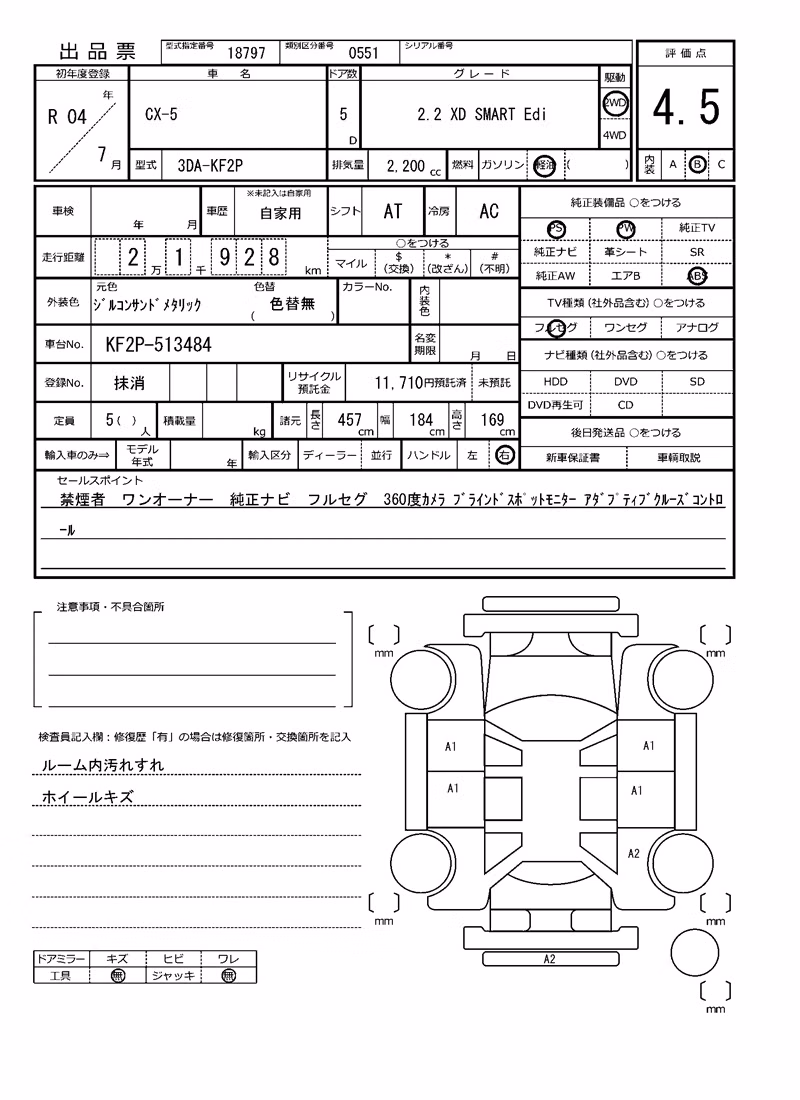 出品票 型式指定番号 18797 類別区分番号 0551 シリアル番号
評価点
4.5
内装 A B C
初年度登録 車名 ドア数 グレード 駆動
R 04 年 7 月 CX-5 5 D 2.2 XD SMART Edi 2WD 4WD
型式 3DA-KF2P 排気量 2,200 cc 燃料 ガソリン 軽油 ( )
車検 年 月 車歴 ※未記入は自家用 自家用 シフト AT 冷房 AC
走行距離 2 万 1 千 9 2 8 km ○をつける
マイル $ (交換) * (改ざん) # (不明)
外装色 元色 ジルコンサンドメタリック 色替 色替無 ( ) カラーNo. 内装色
車台No. KF2P-513484 名変期限 月 日
登録No. 抹消 リサイクル預託金 11,710円預託済 未預託
定員 5( ) 人 積載量 kg 諸元 長さ 457 cm 幅 184 cm 高さ 169 cm
輸入車のみ⇒ モデル年式 年 輸入区分 ディーラー 並行 ハンドル 左 右
純正装備品 ○をつける
PS PW 純正TV
純正ナビ 革シート SR
純正AW エアB ABS
TV種類(社外品含む)○をつける
フルセグ ワンセグ アナログ
ナビ種類(社外品含む)○をつける
HDD DVD SD
DVD再生可 CD
後日発送品 ○をつける
新車保証書 車輌取説
セールスポイント
禁煙者 ワンオーナー 純正ナビ フルセグ 360度カメラ ブラインドスポットモニター アダプティブクルーズコントロ
ール
注意事項・不具合箇所
検査員記入欄:修復歴「有」の場合は修復箇所・交換箇所を記入
ルーム内汚れすれ
ホイールキズ
ドアミラー キズ ヒビ ワレ
工具 無 ジャッキ 無
mm mm
A1 A1
A1 A1
A2
mm mm
A2
mm